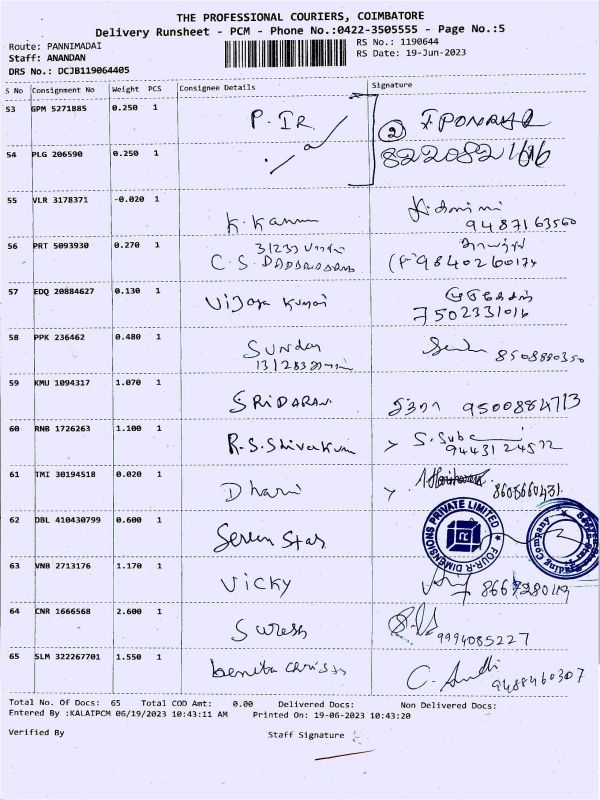 THE PROFESSIONAL COURIERS, COIMBATORE
Delivery Runsheet - PCM - Phone No.:0422-3505555 - Page No.:5
Route: PANNIMADAI
RS No.: 1190644
Staff: ANANDAN
RS Date: 19-Jun-2023
DRS No.: DCJB119064405
S No Consignment No Weight PCS Consignee Details Signature
53 GPM 5271885 0.250 1 P. IR
54 PLG 206590 0.250 1 2 8220821616
55 VLR 3178371 -0.020 1 K. Kannn 9487163560
56 PRT 5093930 0.270 1 C.S. 9840260174
57 EDQ 20884627 0.130 1 Vijaya Kumar 7502331016
58 PPK 236462 0.480 1 Sunday 8508880350
59 KMU 1094317 1.070 1 SRIDARAN 9500884713
60 RNB 1726263 1.100 1 R.S. Shivakum 9443124572
61 TMI 30194518 0.020 1 Dharni 8608660431
62 DBL 410430799 0.600 1 Seven Star FOUR-R DIMENSIONS PRIVATE LIMITED
63 VNB 2713176 1.170 1 Vicky
64 CNR 1666568 2.600 1 Suresh 9994085227
65 SLM 322267701 1.550 1 benita 9488460307
Total No. Of Docs: 65 Total COD Amt: 0.00 Delivered Docs: Non Delivered Docs:
Entered By :KALAIPCM 06/19/2023 10:43:11 AM Printed On: 19-06-2023 10:43:20
Verified By Staff Signature :